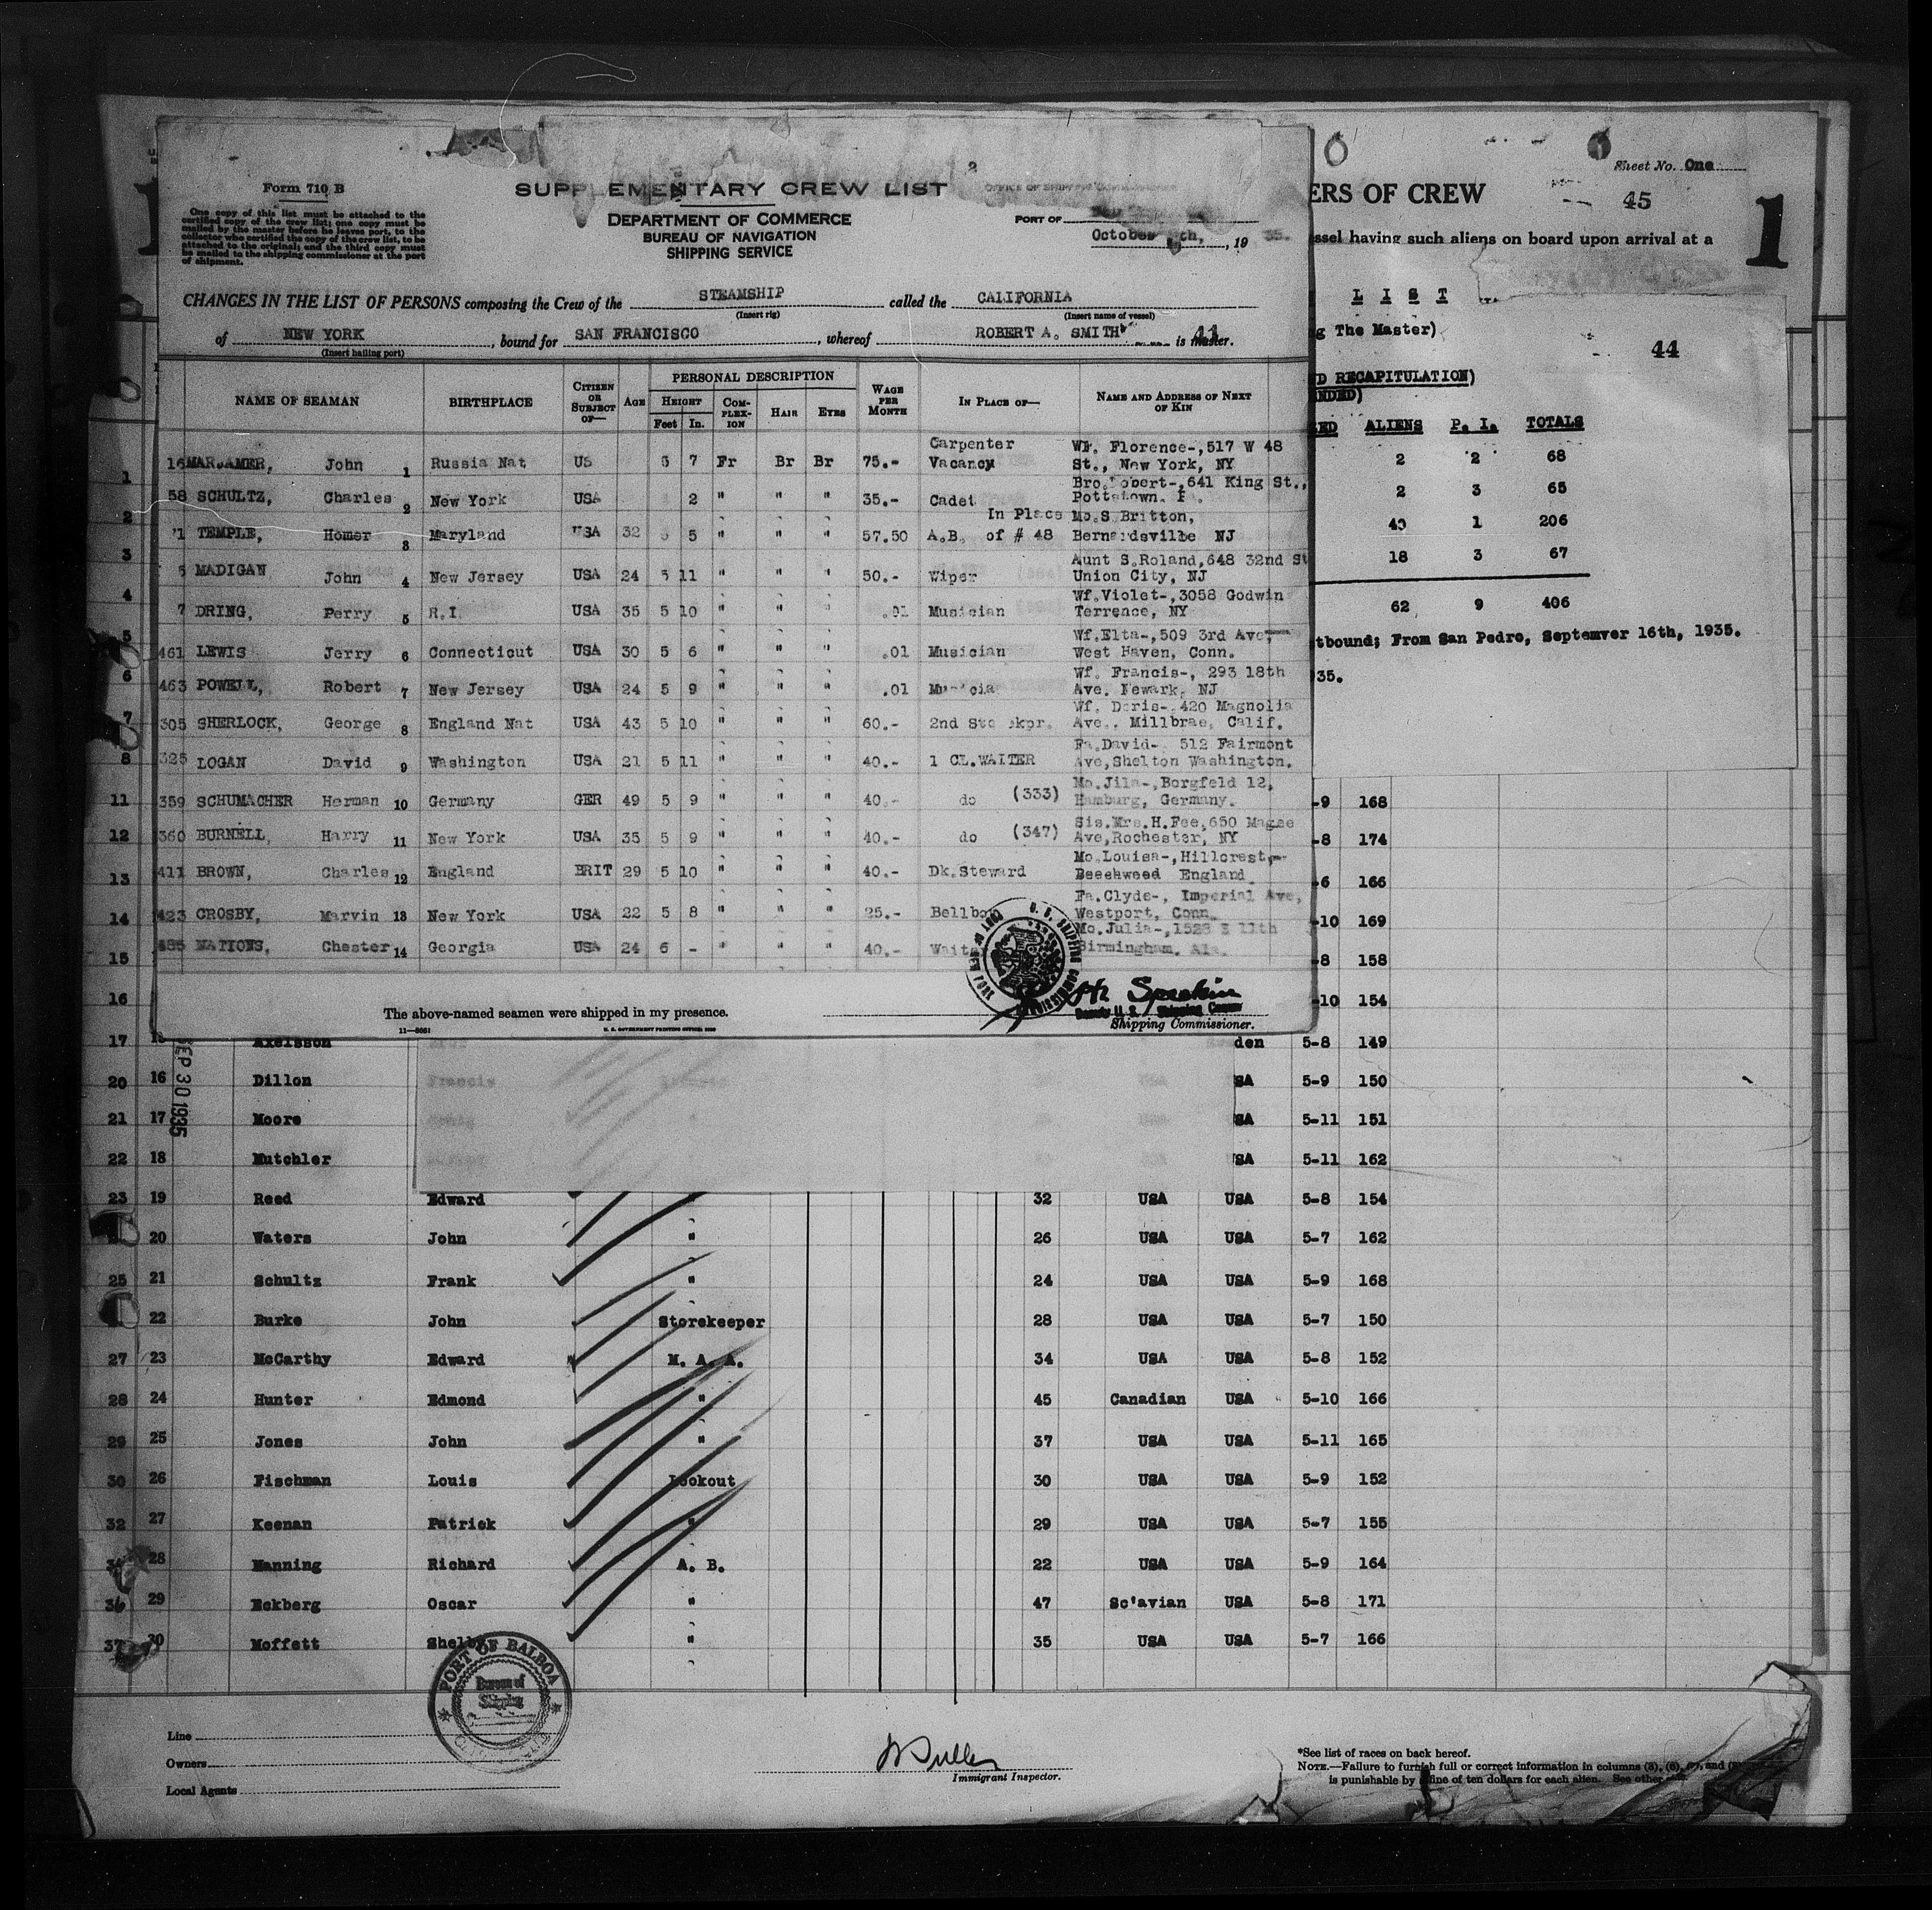 Form 710 B
One copy of this list must be attached to the
certified copy of the crew list; one copy must be
mailed by the master before he leaves port, to the
collector who certified the copy of the crew list, to be
attached to the original; and the third copy must
be mailed to the shipping commissioner at the port
of shipment.
SUPPLEMENTARY CREW LIST
DEPARTMENT OF COMMERCE
BUREAU OF NAVIGATION
SHIPPING SERVICE
OFFICE OF SHIPPING COMMISSIONER
PORT OF
October , 19 35.
CHANGES IN THE LIST OF PERSONS composing the Crew of the STEAMSHIP called the CALIFORNIA
(Insert rig) (Insert name of vessel)
of NEW YORK, bound for SAN FRANCISCO, whereof ROBERT A. SMITH is master.
(Insert hailing port)
41
NAME OF SEAMAN BIRTHPLACE CITIZEN OR SUBJECT OF— AGE PERSONAL DESCRIPTION HEIGHT Feet In. COMPLEXION HAIR EYES WAGE PER MONTH IN PLACE OF— NAME AND ADDRESS OF NEXT OF KIN
1 16 MARJAMER, John 1 Russia Nat US 5 7 Fr Br Br 75.- Carpenter Vacancy Wf. Florence-,517 W 48 St., New York, NY
2 58 SCHULTZ, Charles 2 New York USA 2 " " " 35.- Cadet Bro. Robert-,641 King St., Pottstown. Pa.
3 71 TEMPLE, Homer 3 Maryland USA 32 5 5 " " " 57.50 A.B. In Place of # 48 Mo.S Britton, Bernardsville NJ
4 5 MADIGAN John 4 New Jersey USA 24 5 11 " " " 50.- Wiper Aunt S.Roland,648 32nd St Union City, NJ
5 7 DRING, Perry 5 R.I. USA 35 5 10 " " " .01 Musician Wf.Violet-,3058 Godwin Terrence, NY
6 461 LEWIS Jerry 6 Connecticut USA 30 5 6 " " " .01 Musician Wf.Elta-,509 3rd Ave, West Haven, Conn.
7 463 POWELL, Robert 7 New Jersey USA 24 5 9 " " " .01 Musician Wf. Francis-, 293 18th Ave. Newark, NJ
8 305 SHERLOCK, George 8 England Nat USA 43 5 10 " " " 60.- 2nd Storekpr. Wf. Doris-,420 Magnolia Ave., Millbrae, Calif.
11 325 LOGAN David 9 Washington USA 21 5 11 " " " 40.- 1 CL.WAITER Fa.David- 512 Fairmont Ave,Shelton Washington.
359 SCHUMACHER Herman 10 Germany GER 49 5 9 " " " 40.- do (333) Mo.Jila-,Borgfeld 12, Hamburg, Germany.
12 360 BURNELL, Harry 11 New York USA 35 5 9 " " " 40.- do (347) Sis.Mrs.H.Fee,650 Magee Ave,Rochester, NY
13 411 BROWN, Charles 12 England BRIT 29 5 10 " " " 40.- Dk.Steward Mo.Louisa-,Hillcrest,- Beechwood England
14 423 CROSBY, Marvin 13 New York USA 22 5 8 " " " 25.- Bellboy Fa.Clyde-, Imperial Ave, Westport, Conn.
15 485 NATIONS, Chester 14 Georgia USA 24 6 - " " " 40.- Waiter Mo.Julia-,1523 E 11th Birmingham, Ala.
16
The above-named seamen were shipped in my presence.
Deputy U. S. Shipping Commr
Shipping Commissioner.
11—5651 U. S. GOVERNMENT PRINTING OFFICE
U. S. SHIPPING COMMISSIONER PORT OF NEW YORK
Sheet No. One
ERS OF CREW
45
1
ssel having such aliens on board upon arrival at a
L I S T
g The Master)
44
D RECAPITULATION)
NDED)
ED ALIENS P. I. TOTALS
2 2 68
2 3 65
40 1 206
18 3 67
62 9 406
tbound; From San Pedro, Septemver 16th, 1935.
35.
-9 168
-8 174
-6 166
-10 169
-8 158
-10 154
SEP 30 1935
17 Axelsson den 5-8 149
20 16 Dillon Francis SA 5-9 150
21 17 Moore SA 5-11 151
22 18 Mutchler SA 5-11 162
23 19 Reed Edward 32 USA USA 5-8 154
20 Waters John " 26 USA USA 5-7 162
25 21 Schultz Frank " 24 USA USA 5-9 168
22 Burke John Storekeeper 28 USA USA 5-7 150
27 23 McCarthy Edward M. A. A. 34 USA USA 5-8 152
28 24 Hunter Edmond " 45 Canadian USA 5-10 166
29 25 Jones John " 37 USA USA 5-11 165
30 26 Fischman Louis Lookout 30 USA USA 5-9 152
32 27 Keenan Patrick " 29 USA USA 5-7 155
28 Manning Richard A. B. 22 USA USA 5-9 164
36 29 Eckberg Oscar " 47 Sc'avian USA 5-8 171
37 30 Moffett Shelby " 35 USA USA 5-7 166
PORT OF BALBOA
Bureau of
Shipping
Line
Owners
Local Agents
Immigrant Inspector.
*See list of races on back hereof.
NOTE.—Failure to furnish full or correct information in columns (3), (6), and
is punishable by fine of ten dollars for each alien. See other